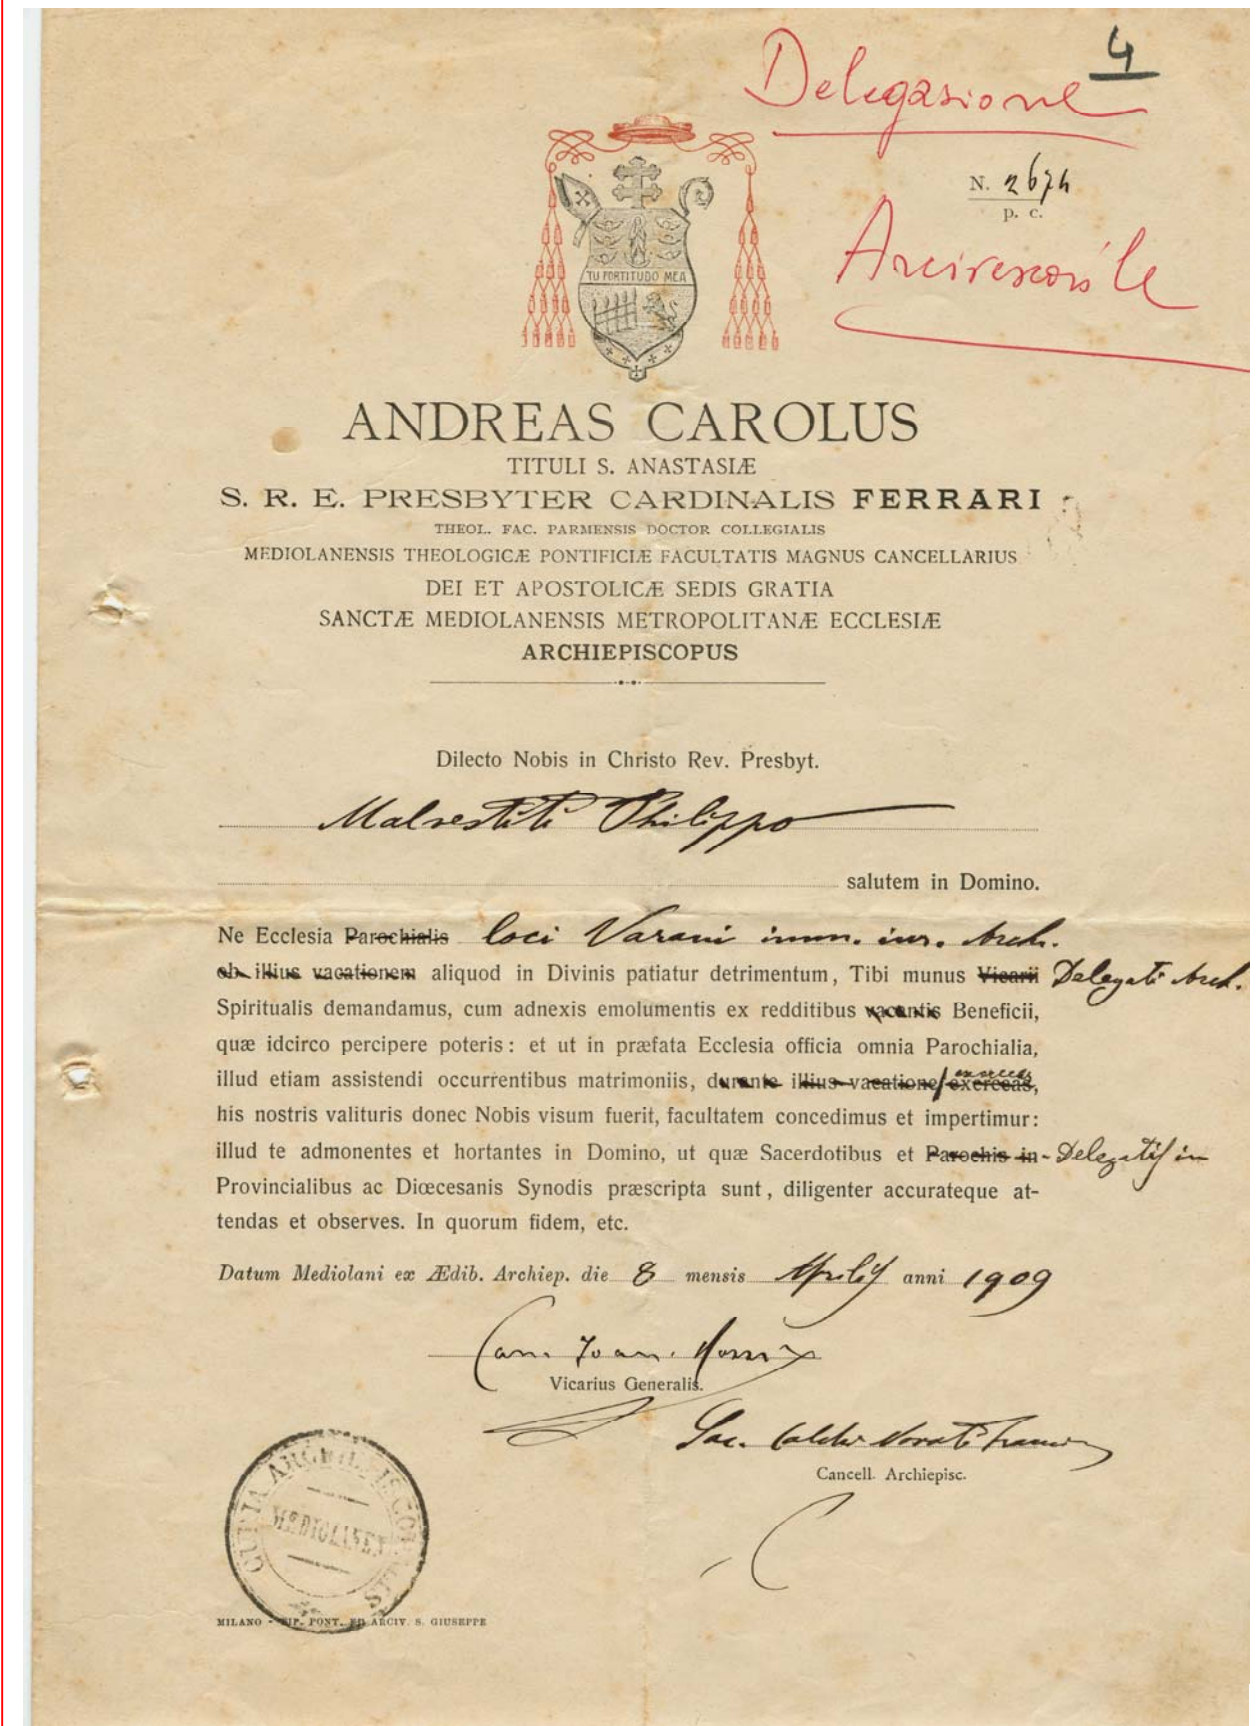 4
Delegazione
N. 2674
p. c.
Arcivescovile
TU FORTITUDO MEA
ANDREAS CAROLUS
TITULI S. ANASTASIÆ
S. R. E. PRESBYTER CARDINALIS FERRARI
THEOL. FAC. PARMENSIS DOCTOR COLLEGIALIS
MEDIOLANENSIS THEOLOGICÆ PONTIFICIÆ FACULTATIS MAGNUS CANCELLARIUS
DEI ET APOSTOLICÆ SEDIS GRATIA
SANCTÆ MEDIOLANENSIS METROPOLITANÆ ECCLESIÆ
ARCHIEPISCOPUS
Dilecto Nobis in Christo Rev. Presbyt.
Malvestiti Philippo
salutem in Domino.
Ne Ecclesia Parochialis loci Varani imm. iur. Arch.
ob illius vacationem aliquod in Divinis patiatur detrimentum, Tibi munus Vicarii Delegati Arch.
Spiritualis demandamus, cum adnexis emolumentis ex redditibus vacantis Beneficii,
quæ idcirco percipere poteris: et ut in præfata Ecclesia officia omnia Parochialia,
illud etiam assistendi occurrentibus matrimoniis, durante illius vacatione exerceas exerceas,
his nostris valituris donec Nobis visum fuerit, facultatem concedimus et impertimur:
illud te admonentes et hortantes in Domino, ut quæ Sacerdotibus et Parochis in- Delegatis in
Provincialibus ac Diœcesanis Synodis præscripta sunt, diligenter accurateque at-
tendas et observes. In quorum fidem, etc.
Datum Mediolani ex Ædib. Archiep. die 8 mensis Aprilis anni 1909
Can. Joan. Rossi
Vicarius Generalis.
Sac.
Cancell. Archiepisc.
CURIA ARCHIEPISCOPALIS
MEDIOLANEN
MILANO - TIP. PONT. ED ARCIV. S. GIUSEPPE